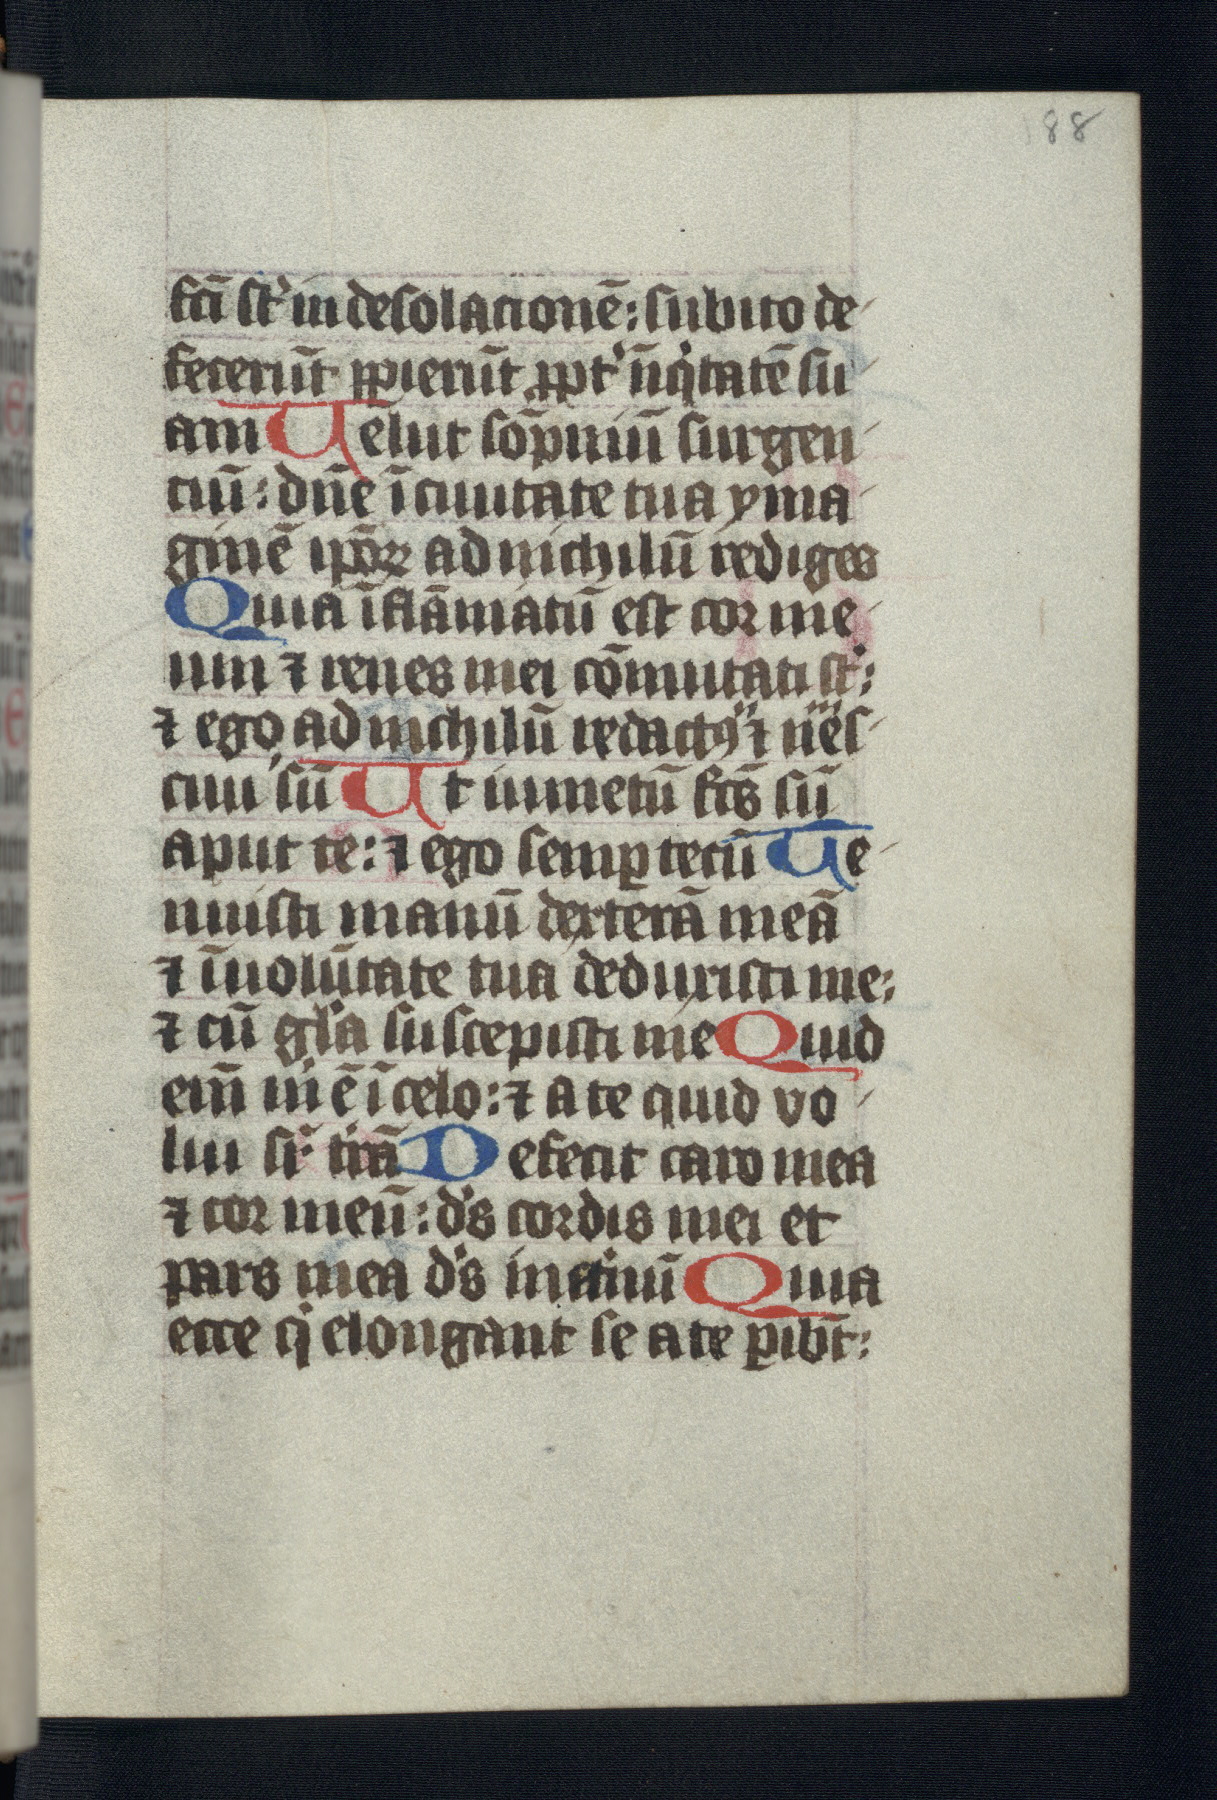 188
fc̄i st̕ in desolacionē: subito de-
fecerūt ꝑpierūt ꝓpt̕ īiq̇tatē su
am Uelut sōpniū surgen-
ciū: dn̄e ī ciuitate tua yma-
ginē ip̄oꝝ ad nichilū rediges
Quia īflāmatū est cor me-
um ⁊ renes mei cōmutati st̕:
⁊ ego ad nichilū redactꝰ ⁊ nes-
ciui sū Ut iumetū fc̄s sū
aput te: ⁊ ego semꝑ tecū Te-
nuisti manū dexterā meā
⁊ ī uolūtate tua deduxisti me:
⁊ cū gl̕a suscepisti me Quid
em̄ m̍ ē ī celo: ⁊ a te quid vo-
lui sr̕ tr̄ā Defecit caro mea
⁊ cor meū: d̕s cordis mei et
pars mea d̕s in etnū Quia
ecce q̇ elongant se a te ꝑibt̄: